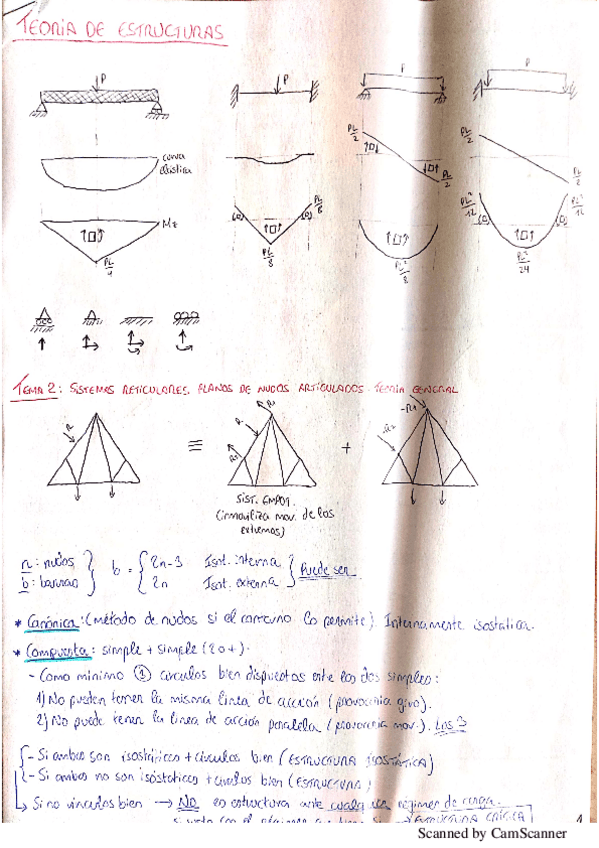 TEORIA DE ESTRUCTURAS
P
P
P
P
PL/2
PL/2
curva
elástica
PL/2
PL/2
Mz
PL/8
PL²/12
PL²/12
(0)
(0)
(0)
PL/4
PL/8
PL²/8
PL²/24
TEMA 2: SISTEMAS RETICULARES PLANOS DE NUDOS ARTICULADOS. TEORÍA GENERAL
R
R
R1
-R1
≡
+
SIST. EMPOT.
(inmoviliza mov. de los
extremos)
n: nudos
b: barras
b =
2n-3 Isot. interna
2n Isot. externa
Puede ser
* Canónica: (método de nudos si el camino lo permite) Internamente isostática.
* Compuesta: simple + simple (2 o +).
- Como mínimo ① círculos bien dispuestos entre los dos simples:
1) No pueden tener la misma línea de acción (provocaría giro).
2) No puede tener la línea de acción paralela (provocaría mov.). Los 3
- Si ambas son isostáticas + vínculos bien (ESTRUCTURA ISOSTÁTICA)
- Si ambas no son isostáticas + vínculos bien (ESTRUCTURA)
↳ Si no vínculos bien → No es estructura ante cualquier régimen de carga.
ESTRUCTURA CRÍTICA
Scanned by CamScanner